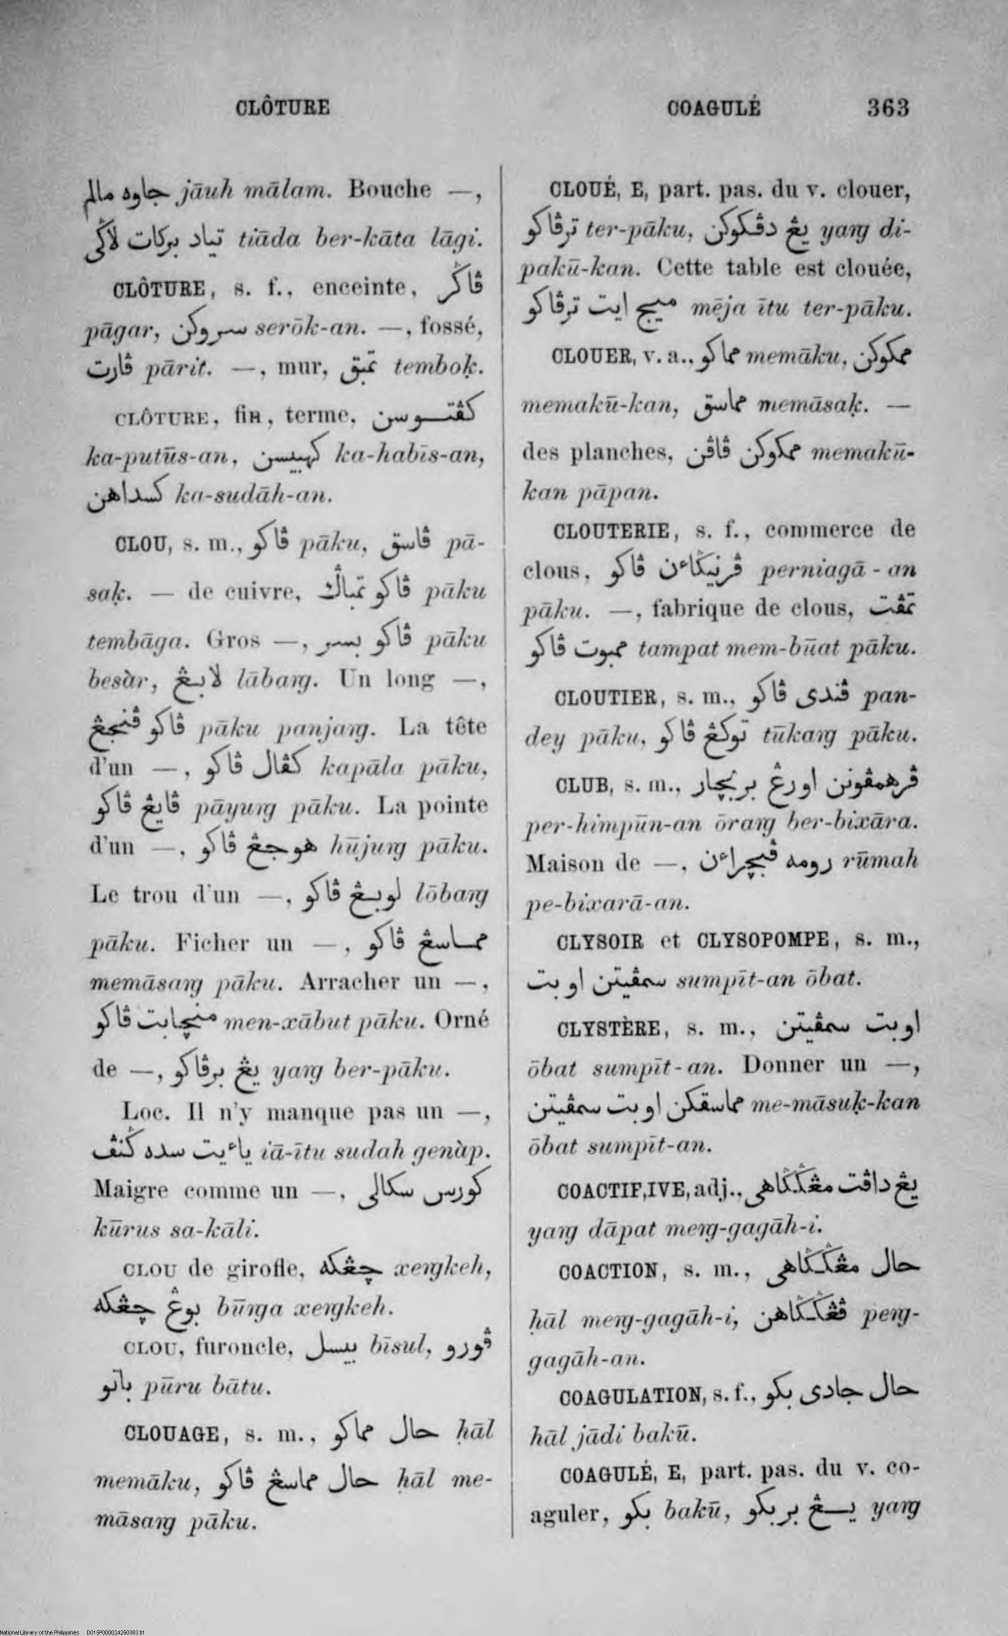 CLÔTURE COAGULÉ 363
جاوه مالم jāuh mālam. Bouche —,
تياد بركات لاݢي tiāda ber-kāta lāgi.
CLÔTURE, s. f., enceinte, ڤاݢر
pāgar, سروكن serōk-an. —, fossé,
ڤارت pārit. —, mur, تمبق temboḳ.
CLÔTURE, fin, terme, كڤتوسن
ka-putūs-an, كهبيسن ka-habīs-an,
كسداهن ka-sudāh-an.
CLOU, s. m., ڤاكو pāku, ڤاسق pā-
saḳ. — de cuivre, ڤاكو تمباݢ pāku
tembāga. Gros —, ڤاكو بسر pāku
besàr, لابڠ lābaƞ. Un long —,
ڤاكو ڤنجڠ pāku panjaƞ. La tête
d'un —, كڤال ڤاكو kapāla pāku,
ڤايڠ ڤاكو pāyuƞ pāku. La pointe
d'un —, هوجڠ ڤاكو hūjuƞ pāku.
Le trou d'un —, لوبڠ ڤاكو lōbaƞ
pāku. Ficher un —, مماسڠ ڤاكو
memāsaƞ pāku. Arracher un —,
منچابت ڤاكو men-xābut pāku. Orné
de —, يڠ برڤاكو yaƞ ber-pāku.
Loc. Il n'y manque pas un —,
ياءيت سده ݢنڤ iā-ītu sudah genàp.
Maigre comme un —, كورس سكالي
kūrus sa-kāli.
CLOU de girofle, چڠكه xeƞkeh,
بوڠ چڠكه būƞa xeƞkeh.
CLOU, furoncle, بيسل bīsul, ڤورو
باتو pūru bātu.
CLOUAGE, s. m., حال مماكو ḥāl
memāku, حال مماسڠ ڤاكو ḥāl me-
māsaƞ pāku.
CLOUÉ, E, part. pas. du v. clouer,
ترڤاكو ter-pāku, يڠ دڤكوكن yaƞ di-
pakū-kan. Cette table est clouée,
ميج ايت ترڤاكو mēja ītu ter-pāku.
CLOUER, v. a., مماكو memāku, ممكوكن
memakū-kan, مماسق memāsaḳ. —
des planches, ممكوكن ڤاڤن memakū-
kan pāpan.
CLOUTERIE, s. f., commerce de
clous, ڤرنيݢاءن ڤاكو perniagā-an
pāku. —, fabrique de clous, تمڤت
ممبوت ڤاكو tampat mem-būat pāku.
CLOUTIER, s. m., ڤندى ڤاكو pan-
dey pāku, توكڠ ڤاكو tūkaƞ pāku.
CLUB, s. m., ڤرهمڤونن اورڠ بربچار
per-himpūn-an ōraƞ ber-bixāra.
Maison de —, رومه ڤبچراءن rūmah
pe-bixarā-an.
CLYSOIR et CLYSOPOMPE, s. m.,
سمڤيتن اوبت sumpīt-an ōbat.
CLYSTÈRE, s. m., اوبت سمڤيتن
ōbat sumpīt-an. Donner un —,
مماسقكن اوبت سمڤيتن me-māsuḳ-kan
ōbat sumpīt-an.
COACTIF, IVE, adj., يڠ داڤت مڠݢݢاهى
yaƞ dāpat meƞ-gagāh-i.
COACTION, s. m., حال مڠݢݢاهى
ḥāl meƞ-gagāh-i, ڤڠݢݢاهن peƞ-
gagāh-an.
COAGULATION, s. f., حال جادى بكو
ḥāl jādi bakū.
COAGULÉ, E, part. pas. du v. co-
aguler, بكو bakū, يڠ بربكو yaƞ
National Library of the Philippines